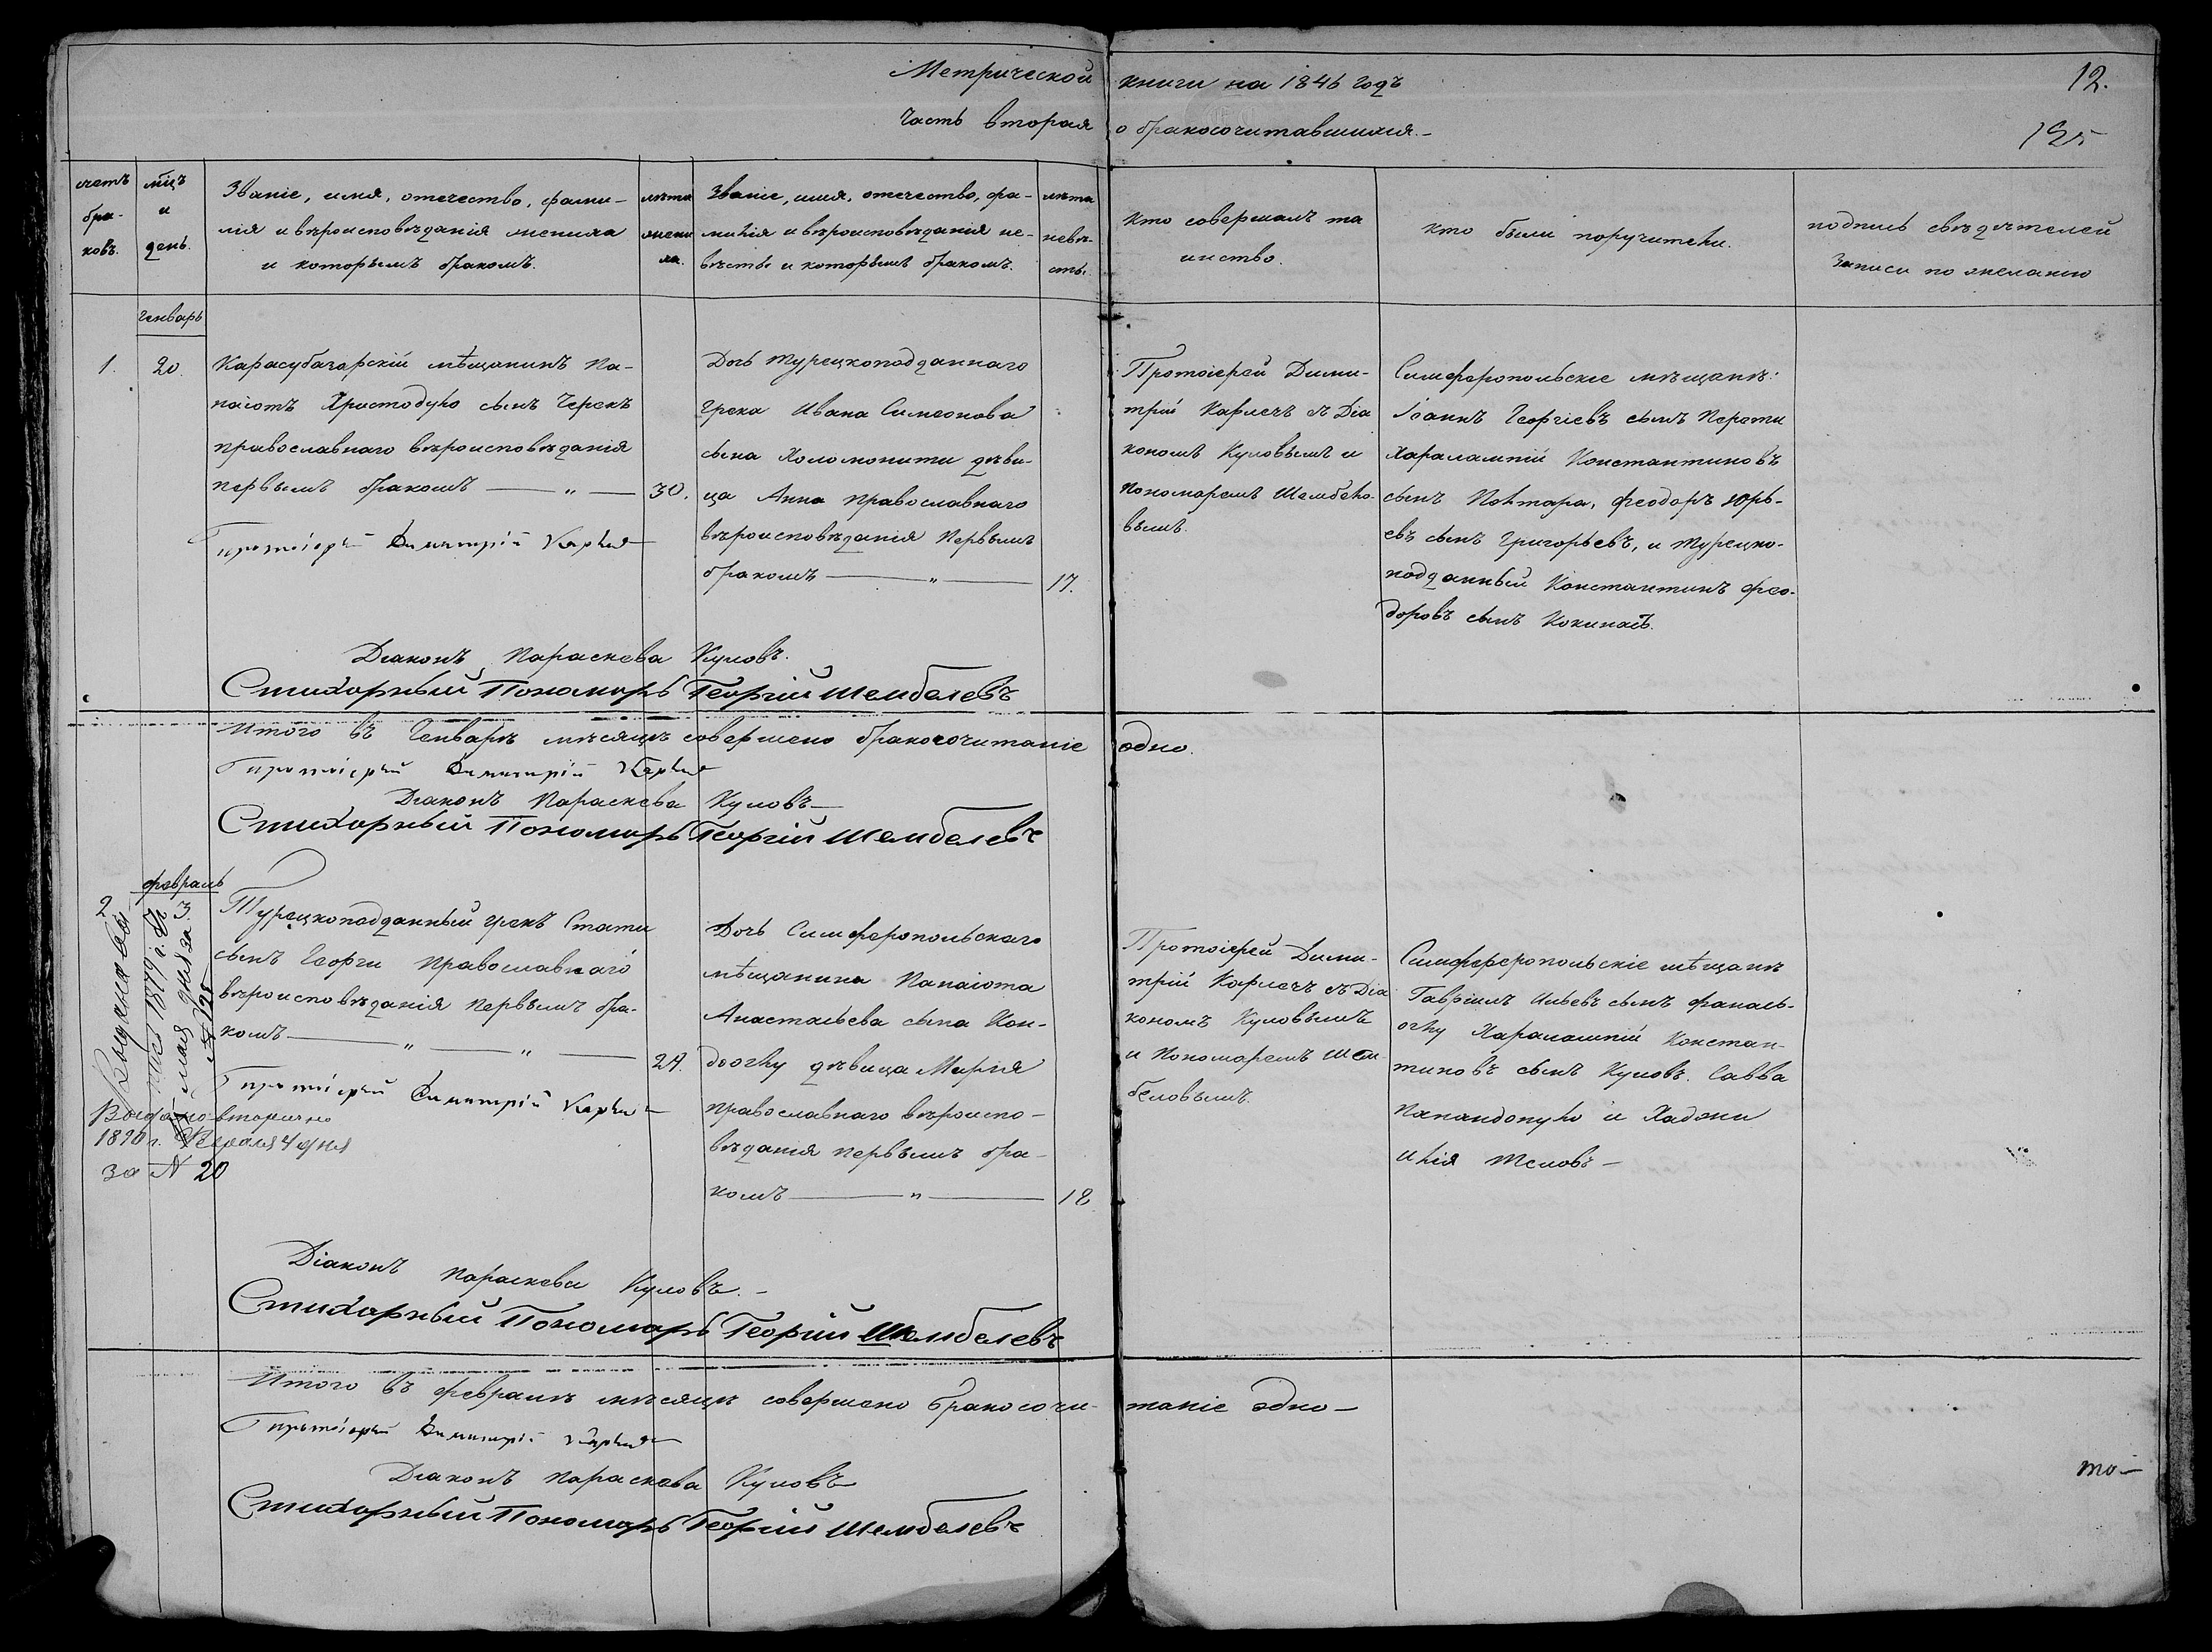 Метрической книги на 1846 годъ
12.
часть вторая о бракосочитавшихся.
125
счетъ браковъ.
мѣцъ и день.
Званіе, имя, отечество, фами-
лія и вѣроисповѣданія жениха
и которымъ бракомъ.
лѣта жениха.
Званіе, имя, отечество, фа-
милія и вѣроисповѣданія не-
вѣсты и которымъ бракомъ.
лѣта невѣ-
сты.
Кто совершалъ та
инство.
Кто были поручители.
подпись свѣдѣтелей
записи по желанію
Генварь
1.
20.
Карасубазарскій мѣщанинъ Па-
наіотъ Христодуло сынъ Черекъ
православнаго вѣроисповѣданія
первымъ бракомъ — „ —
30.
Протоіерей Димитрій
Дочь Турецкоподданнаго
Грека Ивана Симеонова
сына Холомонити дѣви-
ца Анна православнаго
вѣроисповѣданія первымъ
бракомъ — „ —
17.
Протоіерей Дими-
трій съ Діа
кономъ Куловымъ и
пономаремъ Шембело-
вымъ.
Симферопольскіе мѣщанѣ:
Іоаннъ Георгіевъ сынъ
Харалампій Константиновъ
сынъ Феодоръ Юрь-
евъ сынъ Григорьевъ, и турецко-
подданный Константинъ Фео-
доровъ сынъ
Діаконъ Параскева Куловъ.
Стихарный Пономарь Георгій Шембелевъ
Итого въ Генварѣ мѣсяцѣ совершено бракосочитаніе одно.
Протоіерей Димитрій
Діаконъ Параскева Куловъ —
Стихарный Пономарь Георгій Шембелевъ
2
февраль
3.
1879 г.
мая дня за
№ 125
вторично
1890 г. Февраля 4 дня
за № 20
Турецкоподданный грекъ Стати
сынъ Георги православнаго
вѣроисповѣданія первымъ бра-
комъ — „ — „ —
24.
Протоіерей Димитрій
Дочь Симферопольскаго
мѣщанина Панаіота
Анастасьева сына Кон-
дѣвица Марія
православнаго вѣроиспо-
вѣданія первымъ бра-
комъ — „ —
18
Протоіерей Дими-
трій съ Діа
кономъ Куловымъ
и Пономаремъ Шем
беловымъ.
Симферопольскіе мѣщанѣ
Гавріилъ Ильевъ сынъ
Харалампій Констан-
тиновъ сынъ Куловъ. Савва
Папандопуло и Хаджи
Илія
Діаконъ Параскева Куловъ. -
Стихарный Пономарь Георгій Шембелевъ
Итого въ февралѣ мѣсяцѣ совершено бракосочи- таніе одно —
Протоіерей Димитрій
Діаконъ Параскева Куловъ
Стихарный Пономарь Георгій Шембелевъ